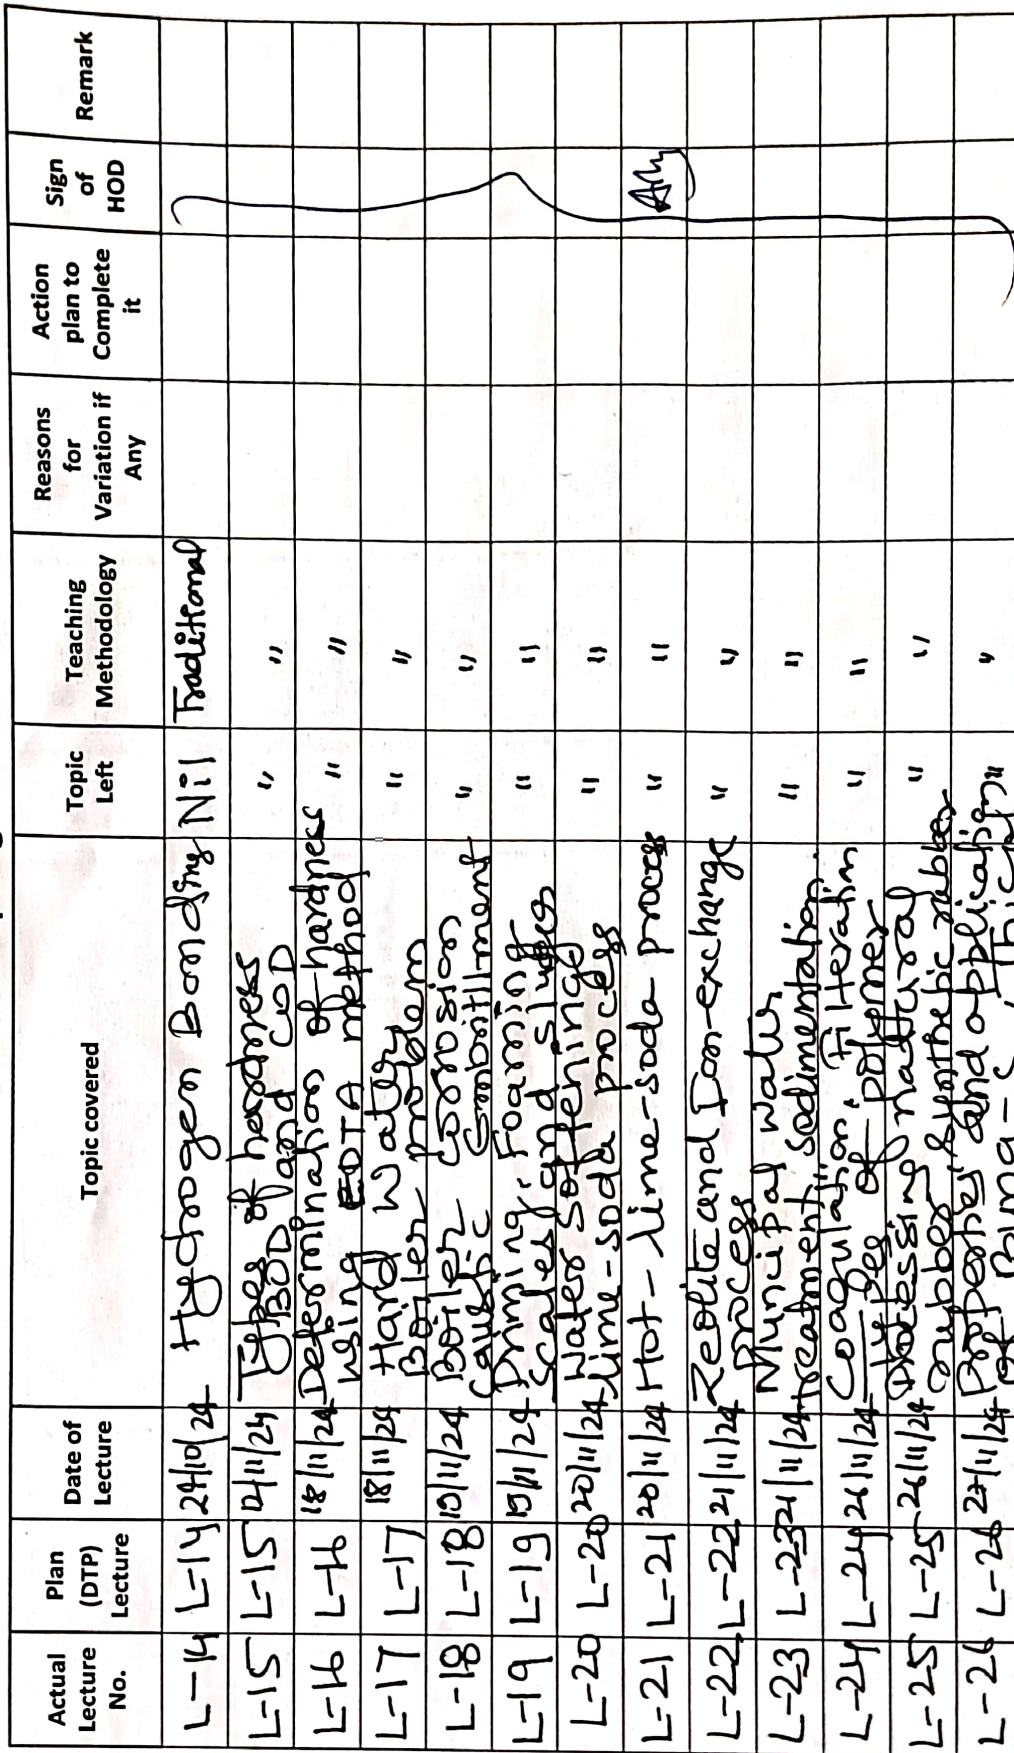 Actual Lecture No. | Plan (DTP) Lecture | Date of Lecture | Topic covered | Topic Left | Teaching Methodology | Reasons for Variation if Any | Action plan to Complete it | Sign of HOD | Remark
L-14 | L-14 | 24/10/24 | Hydrogen Bonding | Nil | Traditional
L-15 | L-15 | 12/11/24 | Types of hardness
BOD and COD | " | "
L-16 | L-16 | 18/11/24 | Determination of hardness
using EDTA method | " | "
L-17 | L-17 | 18/11/24 | Hard Water
Boiler problem | " | "
L-18 | L-18 | 19/11/24 | Boiler Corrosion
Caustic Embrittlment | " | "
L-19 | L-19 | 19/11/24 | Primming, Foaming
Scales and sludges | " | "
L-20 | L-20 | 20/11/24 | Water Softening
lime-soda process | " | "
L-21 | L-21 | 20/11/24 | Hot-lime-soda process | " | "
L-22 | L-22 | 21/11/24 | Zeolite and Ion-exchange
process | " | "
L-23 | L-23 | 21/11/24 | Muncipal water
treatment, sedimentation | " | "
L-24 | L-24 | 26/11/24 | Coagulation, Filteration
types of polymer | " | "
L-25 | L-25 | 26/11/24 | Processing natural
rubber, synthetic rubber | " | "
L-26 | L-26 | 27/11/24 | Properties and application | " | "
of Buna-S, Thiokol